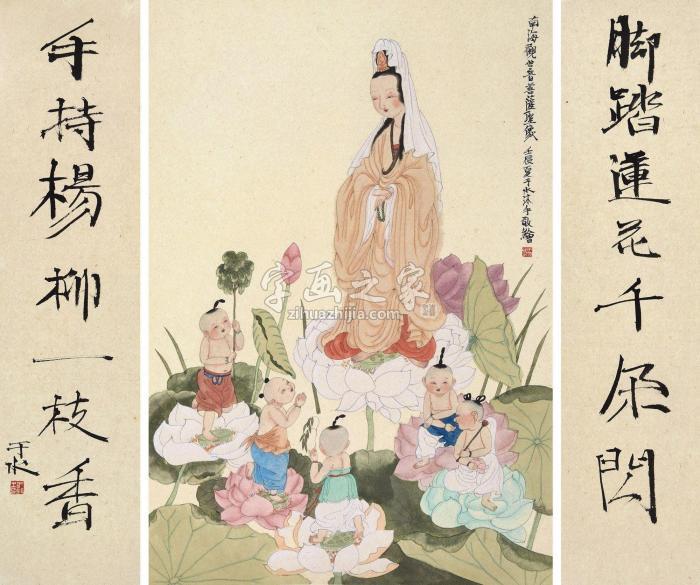 脚踏蓮花千朵開
南海觀世音菩薩聖像 壬辰夏于水沐手敬繪
手持楊柳一枝香
于水
字画之家
zihuazhijia.com